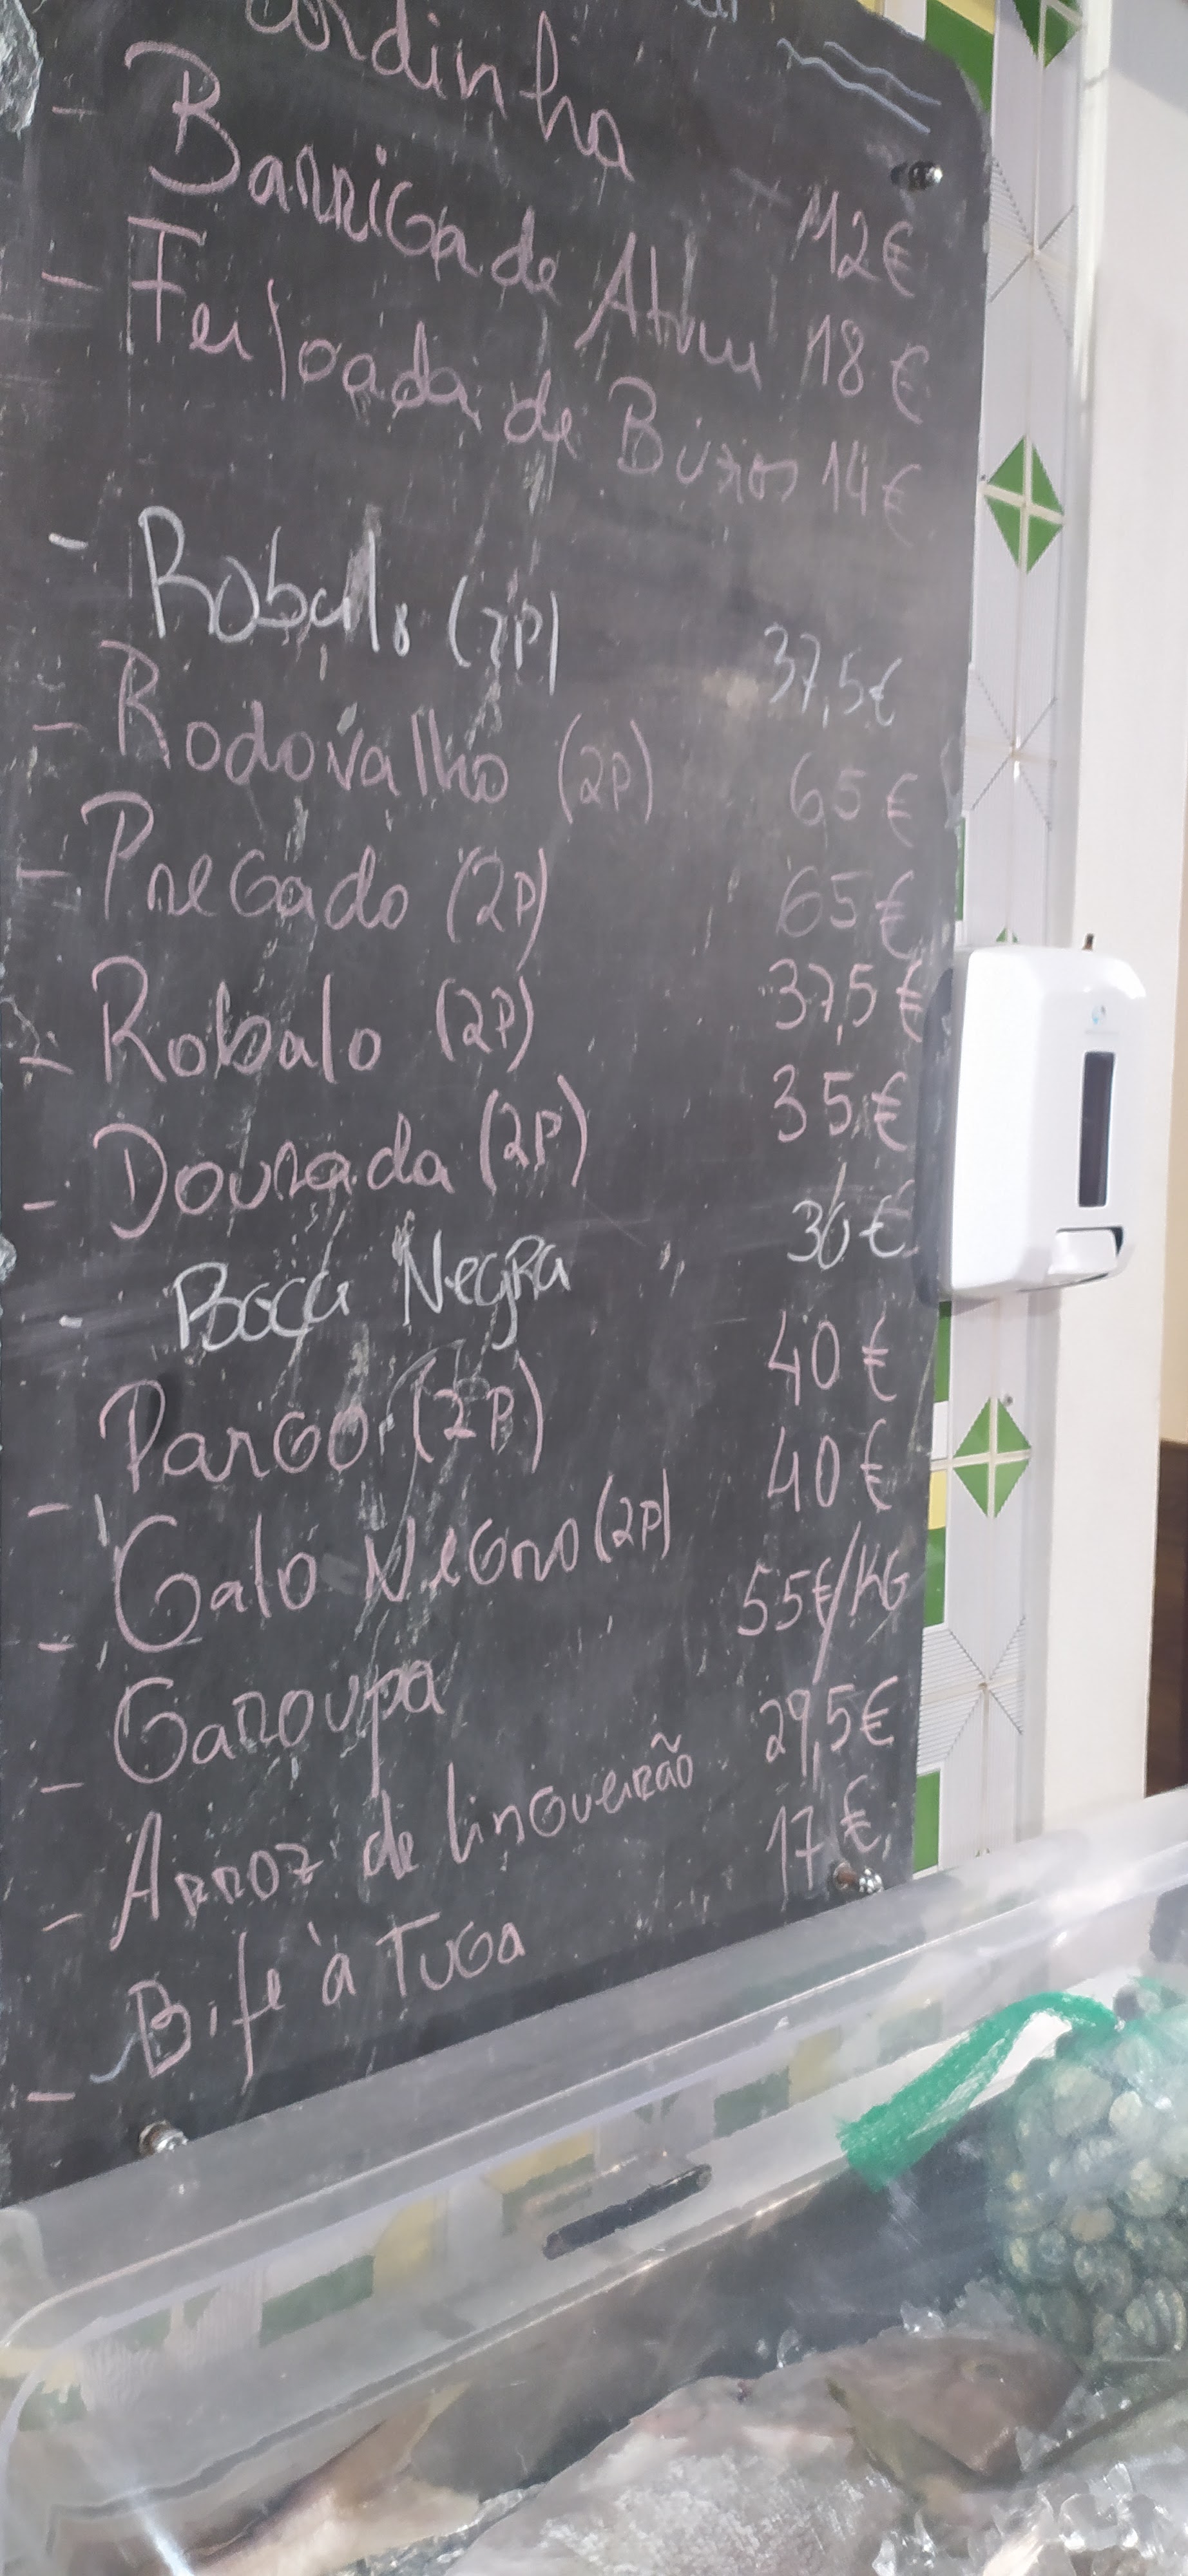 Sardinha 12€
- Barriga de Atum 18€
- Feijoada de Buzos 14€
- Robalo (2P) 37,5€
- Rodovalho (2P) 65€
- Pregado (2P) 65€
- Robalo (2P) 37,5€
- Dourada (2P) 35€
- Boca Negra 36€
- Pargo (2P) 40€
- Galo Negro (2P) 40€
- Garoupa 55€/KG
- Arroz de lingueirão 29,5€
- Bife à Tuga 17€